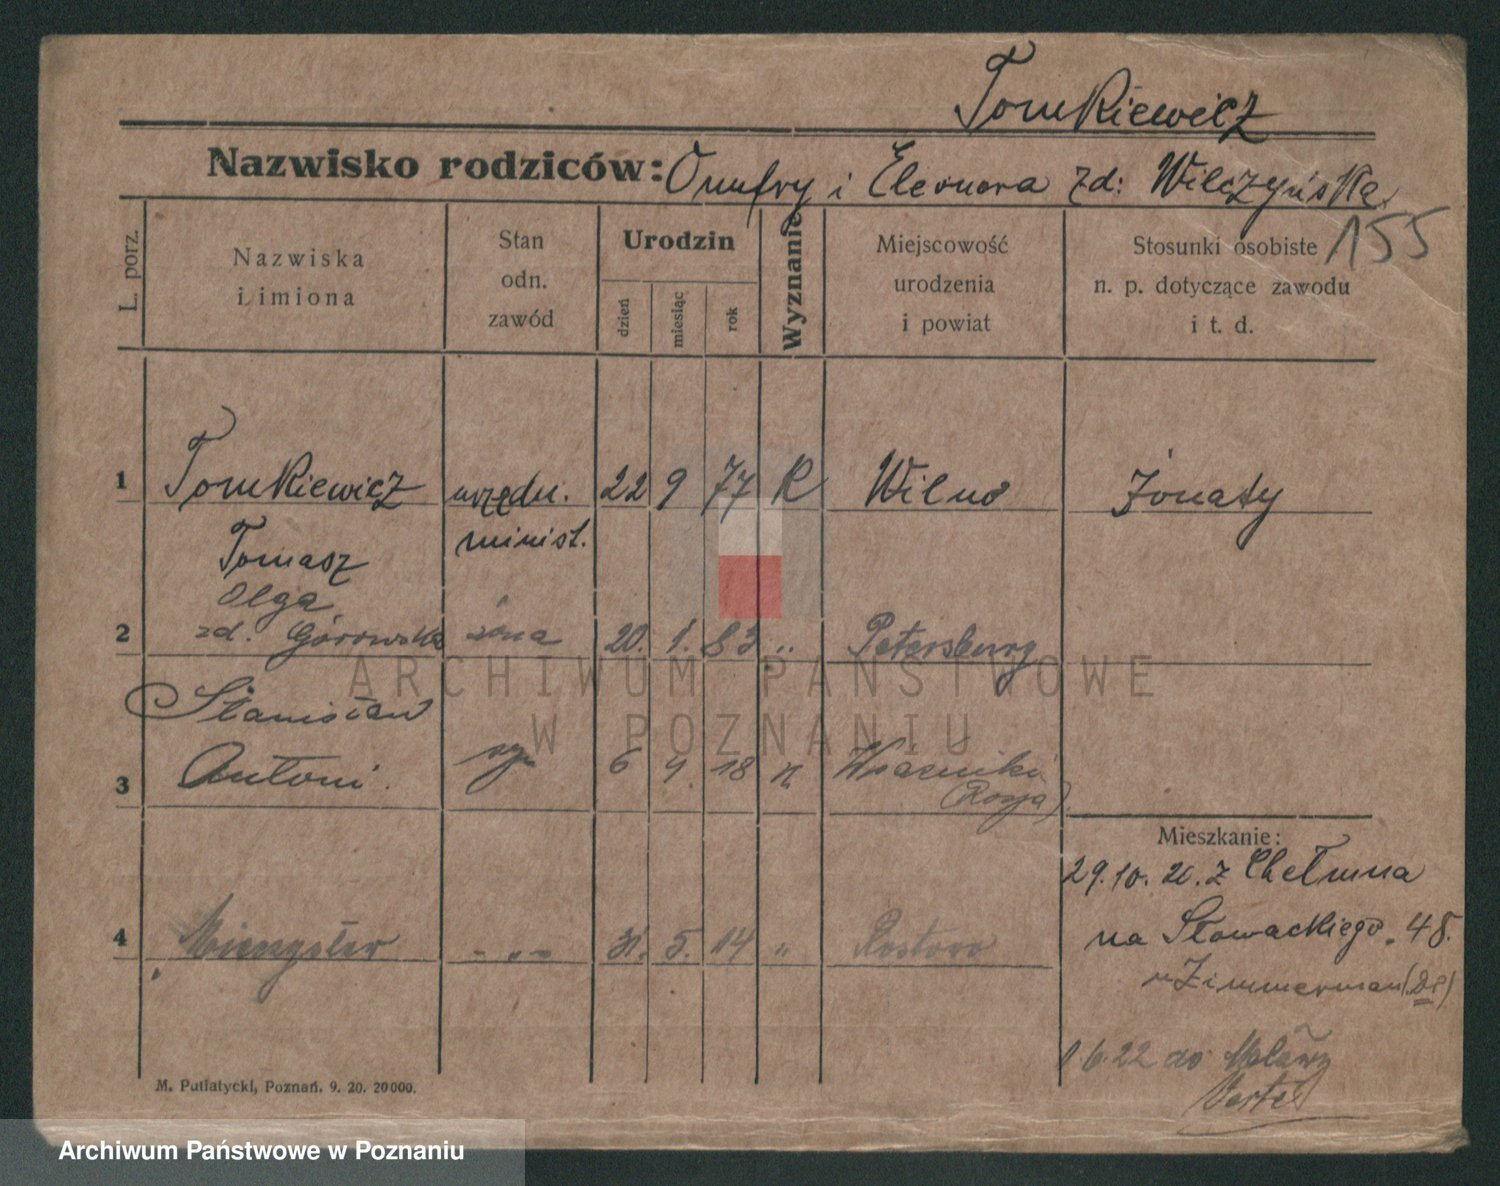 Tomkiewicz
Nazwisko rodziców: Onufry i Eleonora zd: Wilczyńska
155
L. porz.
Nazwiska
i imiona
Stan
odn.
zawód
Urodzin
dzień
miesiąc
rok
Wyznanie
Miejscowość
urodzenia
i powiat
Stosunki osobiste
n. p. dotyczące zawodu
i t. d.
1 Tomkiewicz urzędn. 22 9 77 R Wilno Żonaty
Tomasz minist.
Olga
2 zd. Górowska żona 20. 1. 83 " Petersburg
Stanisław
3 Antoni syn 6 4. 18 (Rosja)
4 Mieczysław - " - 31. 5. 14 " Rostow
Mieszkanie:
29.10. z Chełmna
na Słowackiego. 48.
Zimmerman
1.6.22 do
M. Putiatycki, Poznań. 9. 20. 20000.
ARCHIWUM PAŃSTWOWE
W POZNANIU
Archiwum Państwowe w Poznaniu